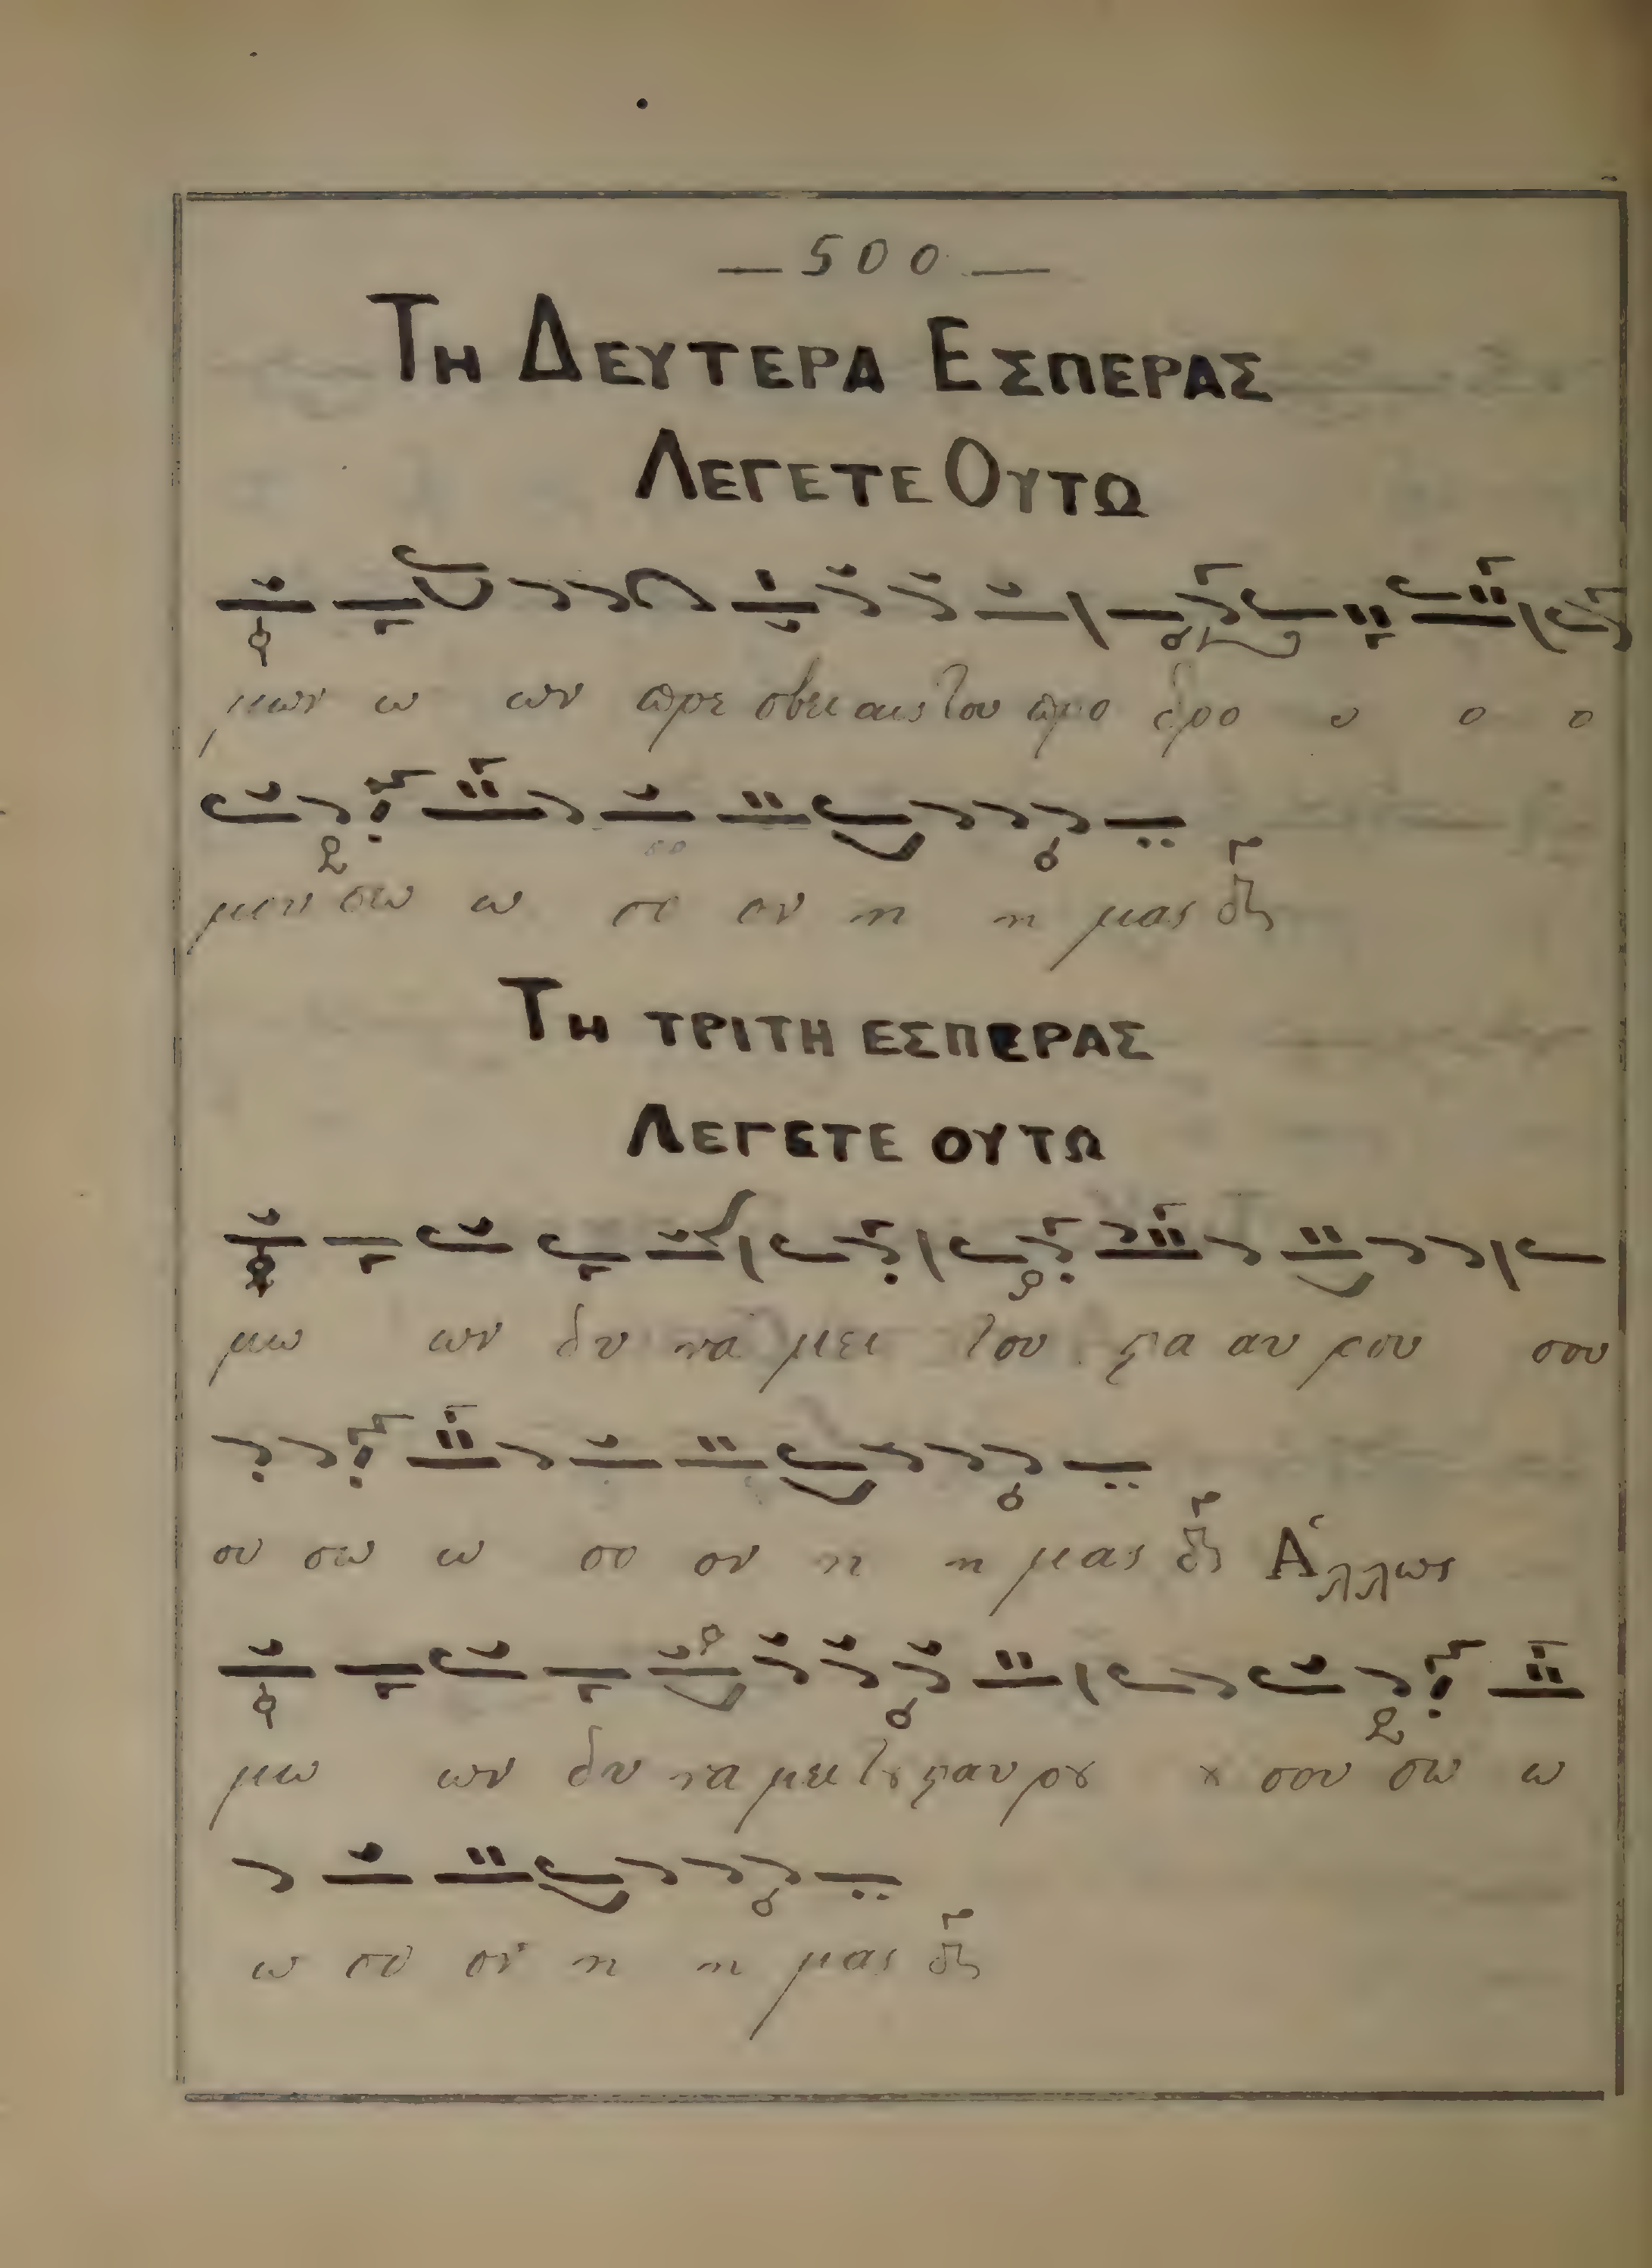 — 500 —
ΤΗ ΔΕΥΤΕΡΑ ΕΣΠΕΡΑΣ
ΛΕΓΕΤΕ ΟΥΤΩ
μων ω ων πρε σβει αις του προ δρο ο ο ο
μου σω ω σο ον η η μας
ΤΗ ΤΡΙΤΗ ΕΣΠΕΡΑΣ
ΛΕΓΕΤΕ ΟΥΤΩ
μω ων δυ να μει του ϛα αυ ρου σου
ου σω ω σο ον η η μας Ἄλλως
μω ων δυ να μει τȣ ϛαυ ρȣ ȣ σου σω ω
ω σο ον η η μας